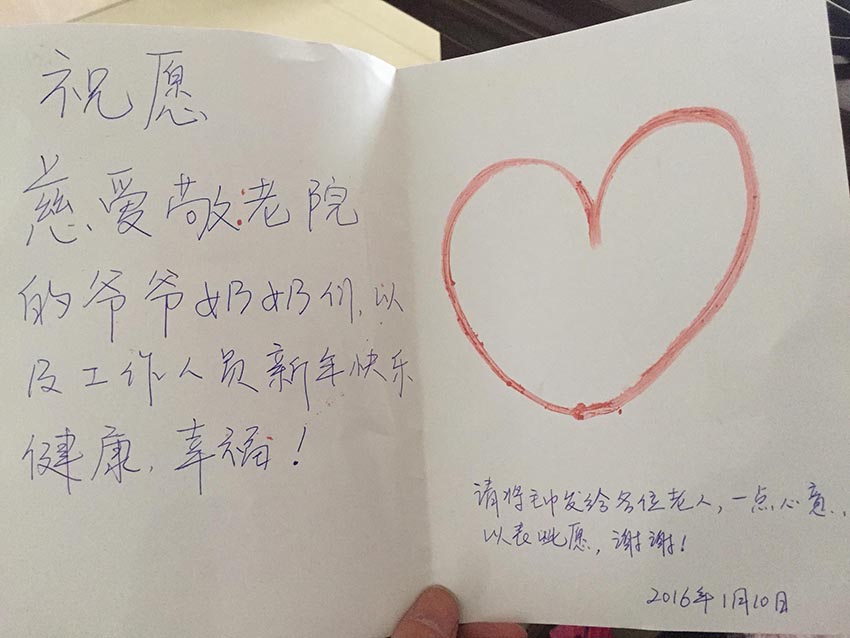 祝愿
慈爱敬老院
的爷爷奶奶们，以
及工作人员新年快乐
健康，幸福！
请将巾发给各位老人，一点心意，
以表此愿，谢谢！
2016年1月10日